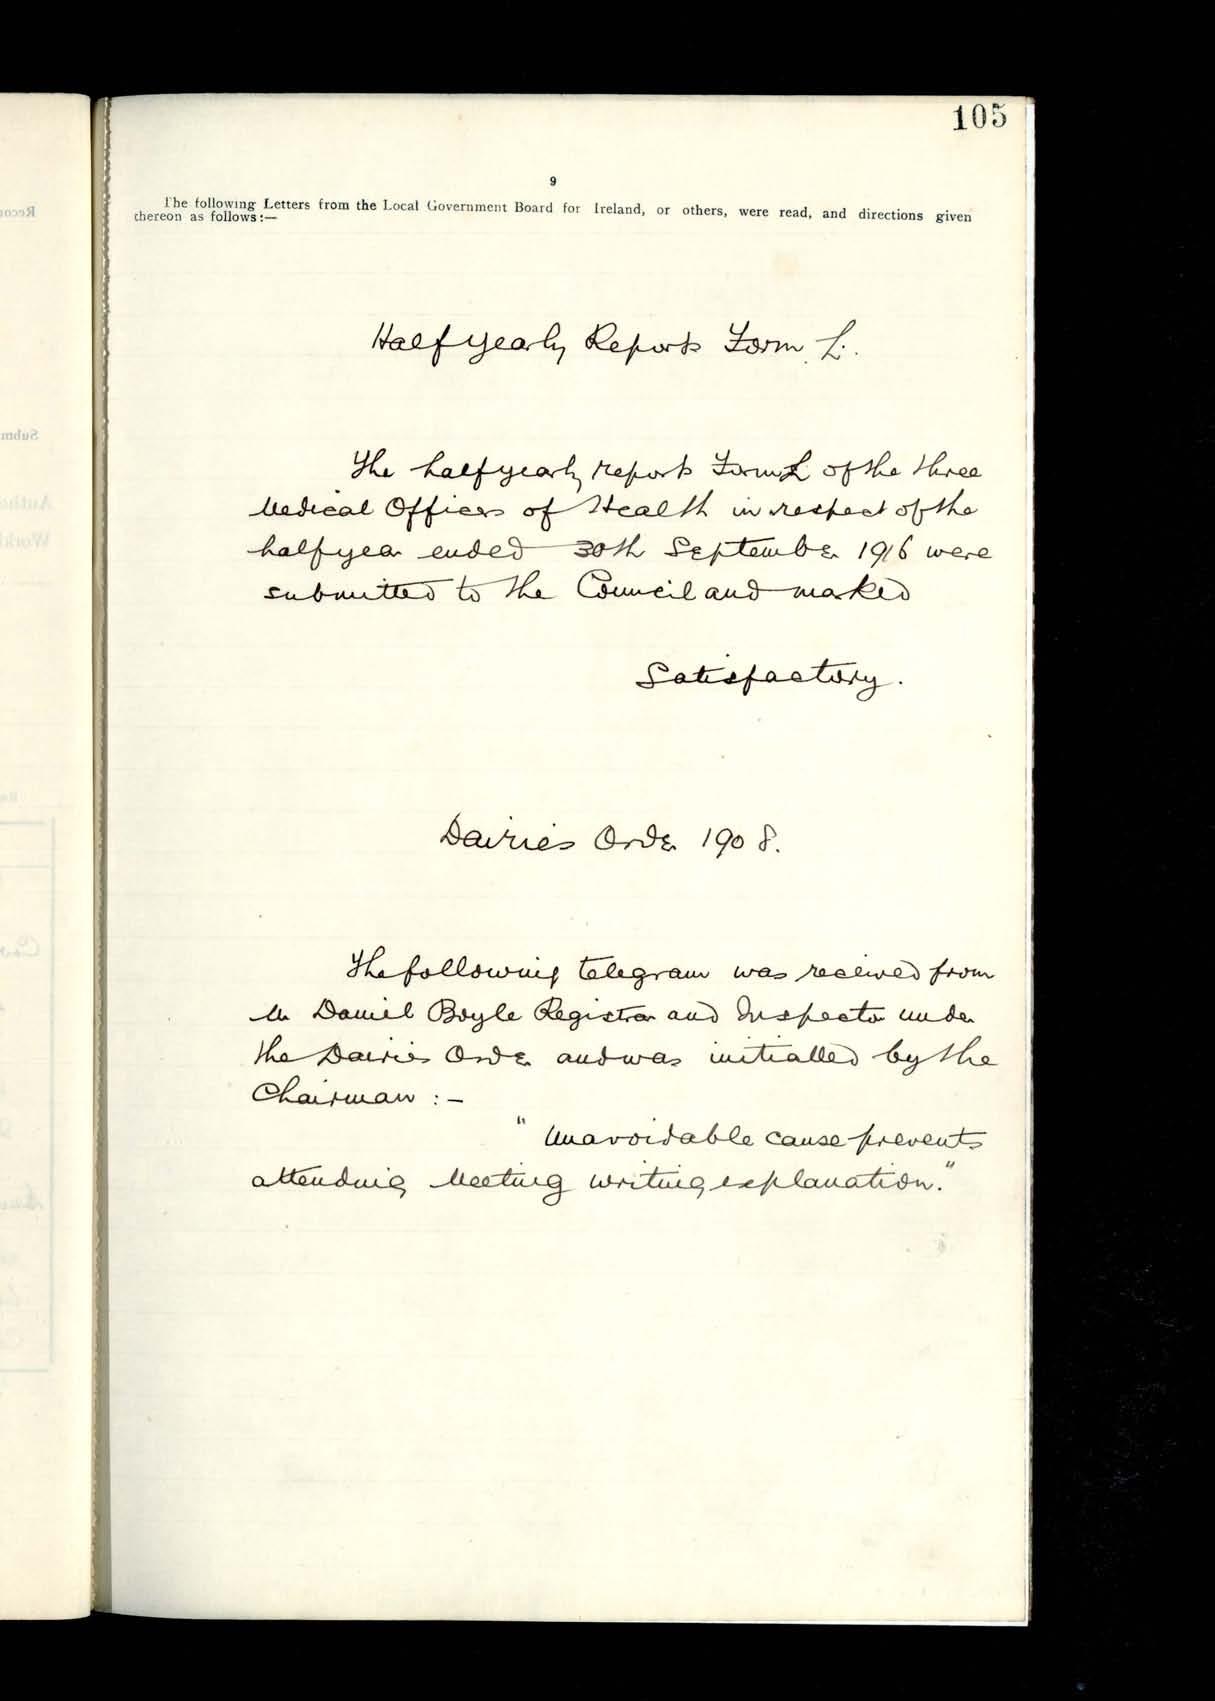 105
9
The following Letters from the Local Government Board for Ireland, or others, were read, and directions given
thereon as follows:—
Half Yearly Reports Form L.
The half yearly reports Form L of the three
Medical Officers of Health in respect of the
half year ended 30th September 1916 were
submitted to the Council and marked
Satisfactory.
Dairies Order 1908.
The following telegram was received from
Mr Daniel Boyle Registrar and Inspector under
the Dairies Order and was initialled by the
Chairman :-
"Unavoidable cause prevents
attending Meeting writing explanation."